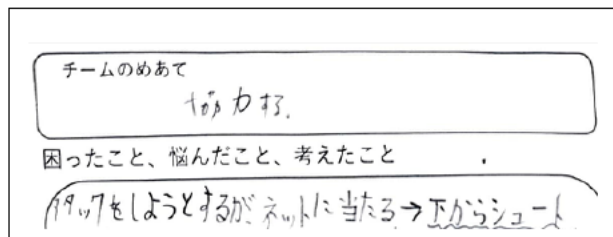 チームのめあて
協力する.
困ったこと、悩んだこと、考えたこと
アタックをしようとするが、ネットに当たる→下からシュート